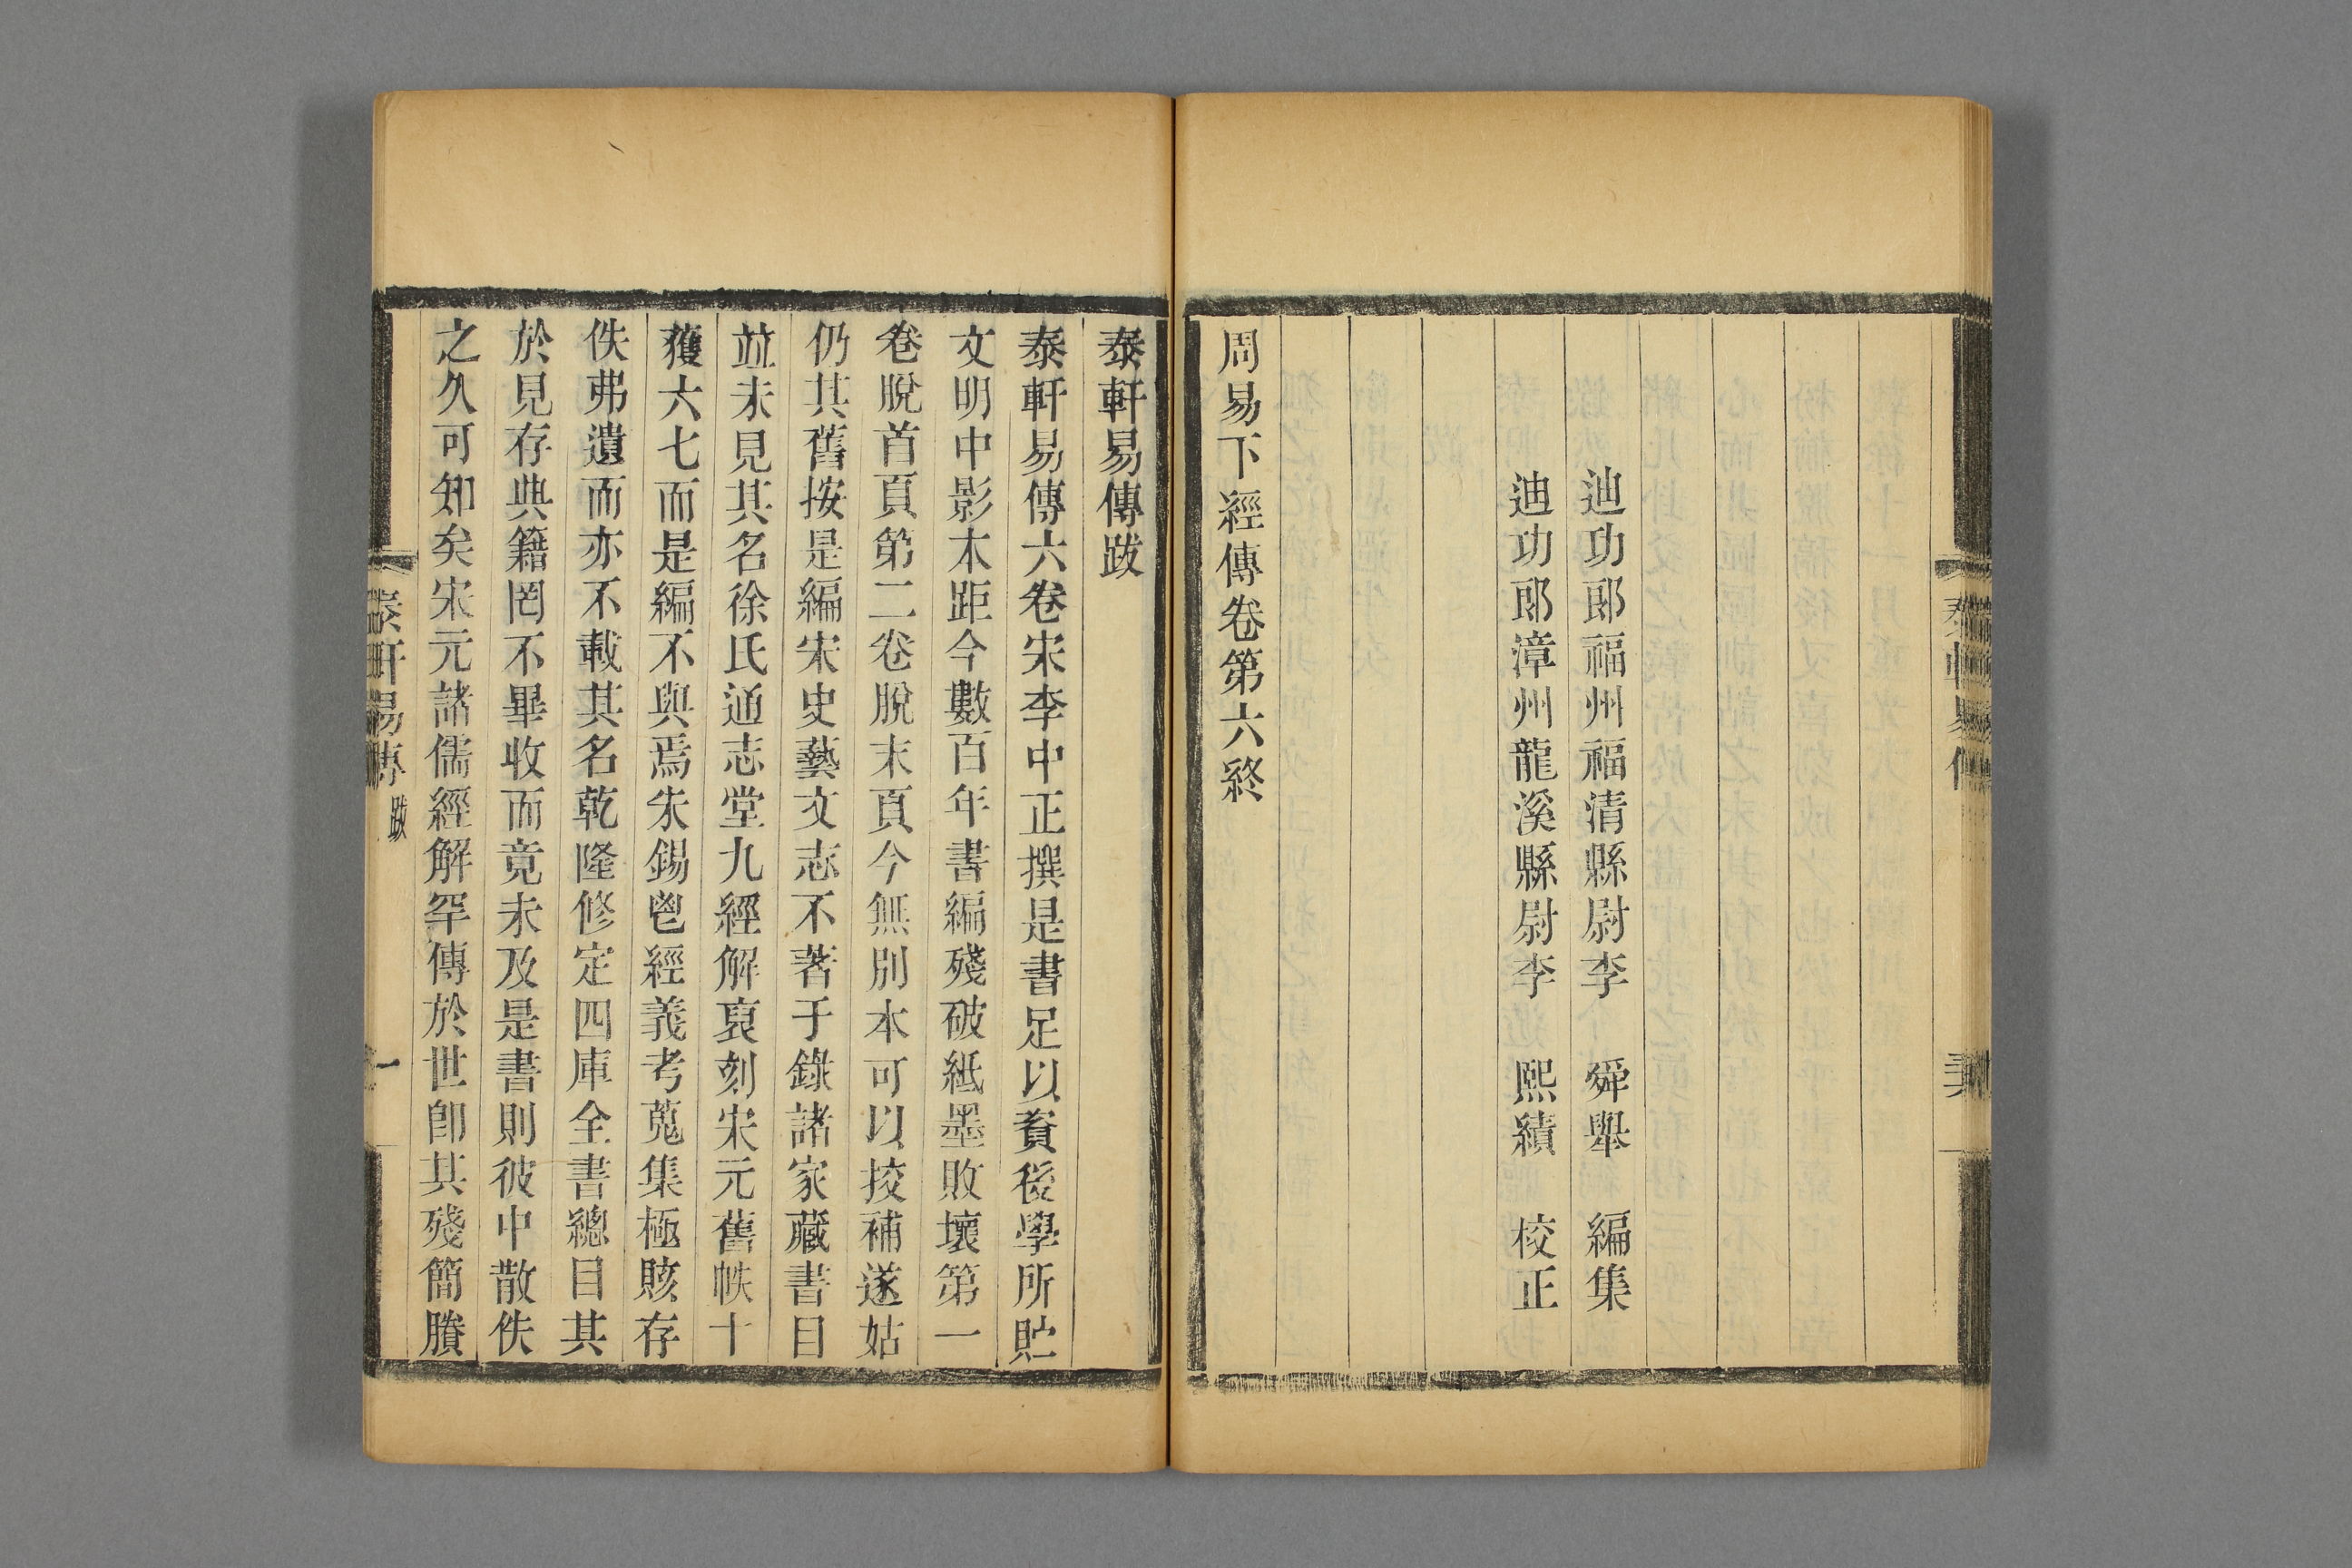 迪功郎福州福清縣尉李　舜舉　編集
迪功郎漳州龍溪縣尉李　熙績　校正
周易下經傳卷第六終
泰軒易傳跋
泰軒易傳六卷宋李中正撰是書足以資後學所貯
文明中影本距今數百年書編殘破紙墨敗壞第一
卷脫首頁第二卷脫末頁今無別本可以挍補遂姑
仍其舊按是編宋史藝文志不著于錄諸家藏書目
竝未見其名徐氏通志堂九經解裒刻宋元舊帙十
獲六七而是編不與焉朱錫鬯經義考蒐集極賅存
佚弗遺而亦不載其名乾隆修定四庫全書總目其
於見存典籍罔不畢收而竟未及是書則彼中散佚
之久可知矣宋元諸儒經解罕傳於世卽其殘簡賸
泰軒易傳　跋　一